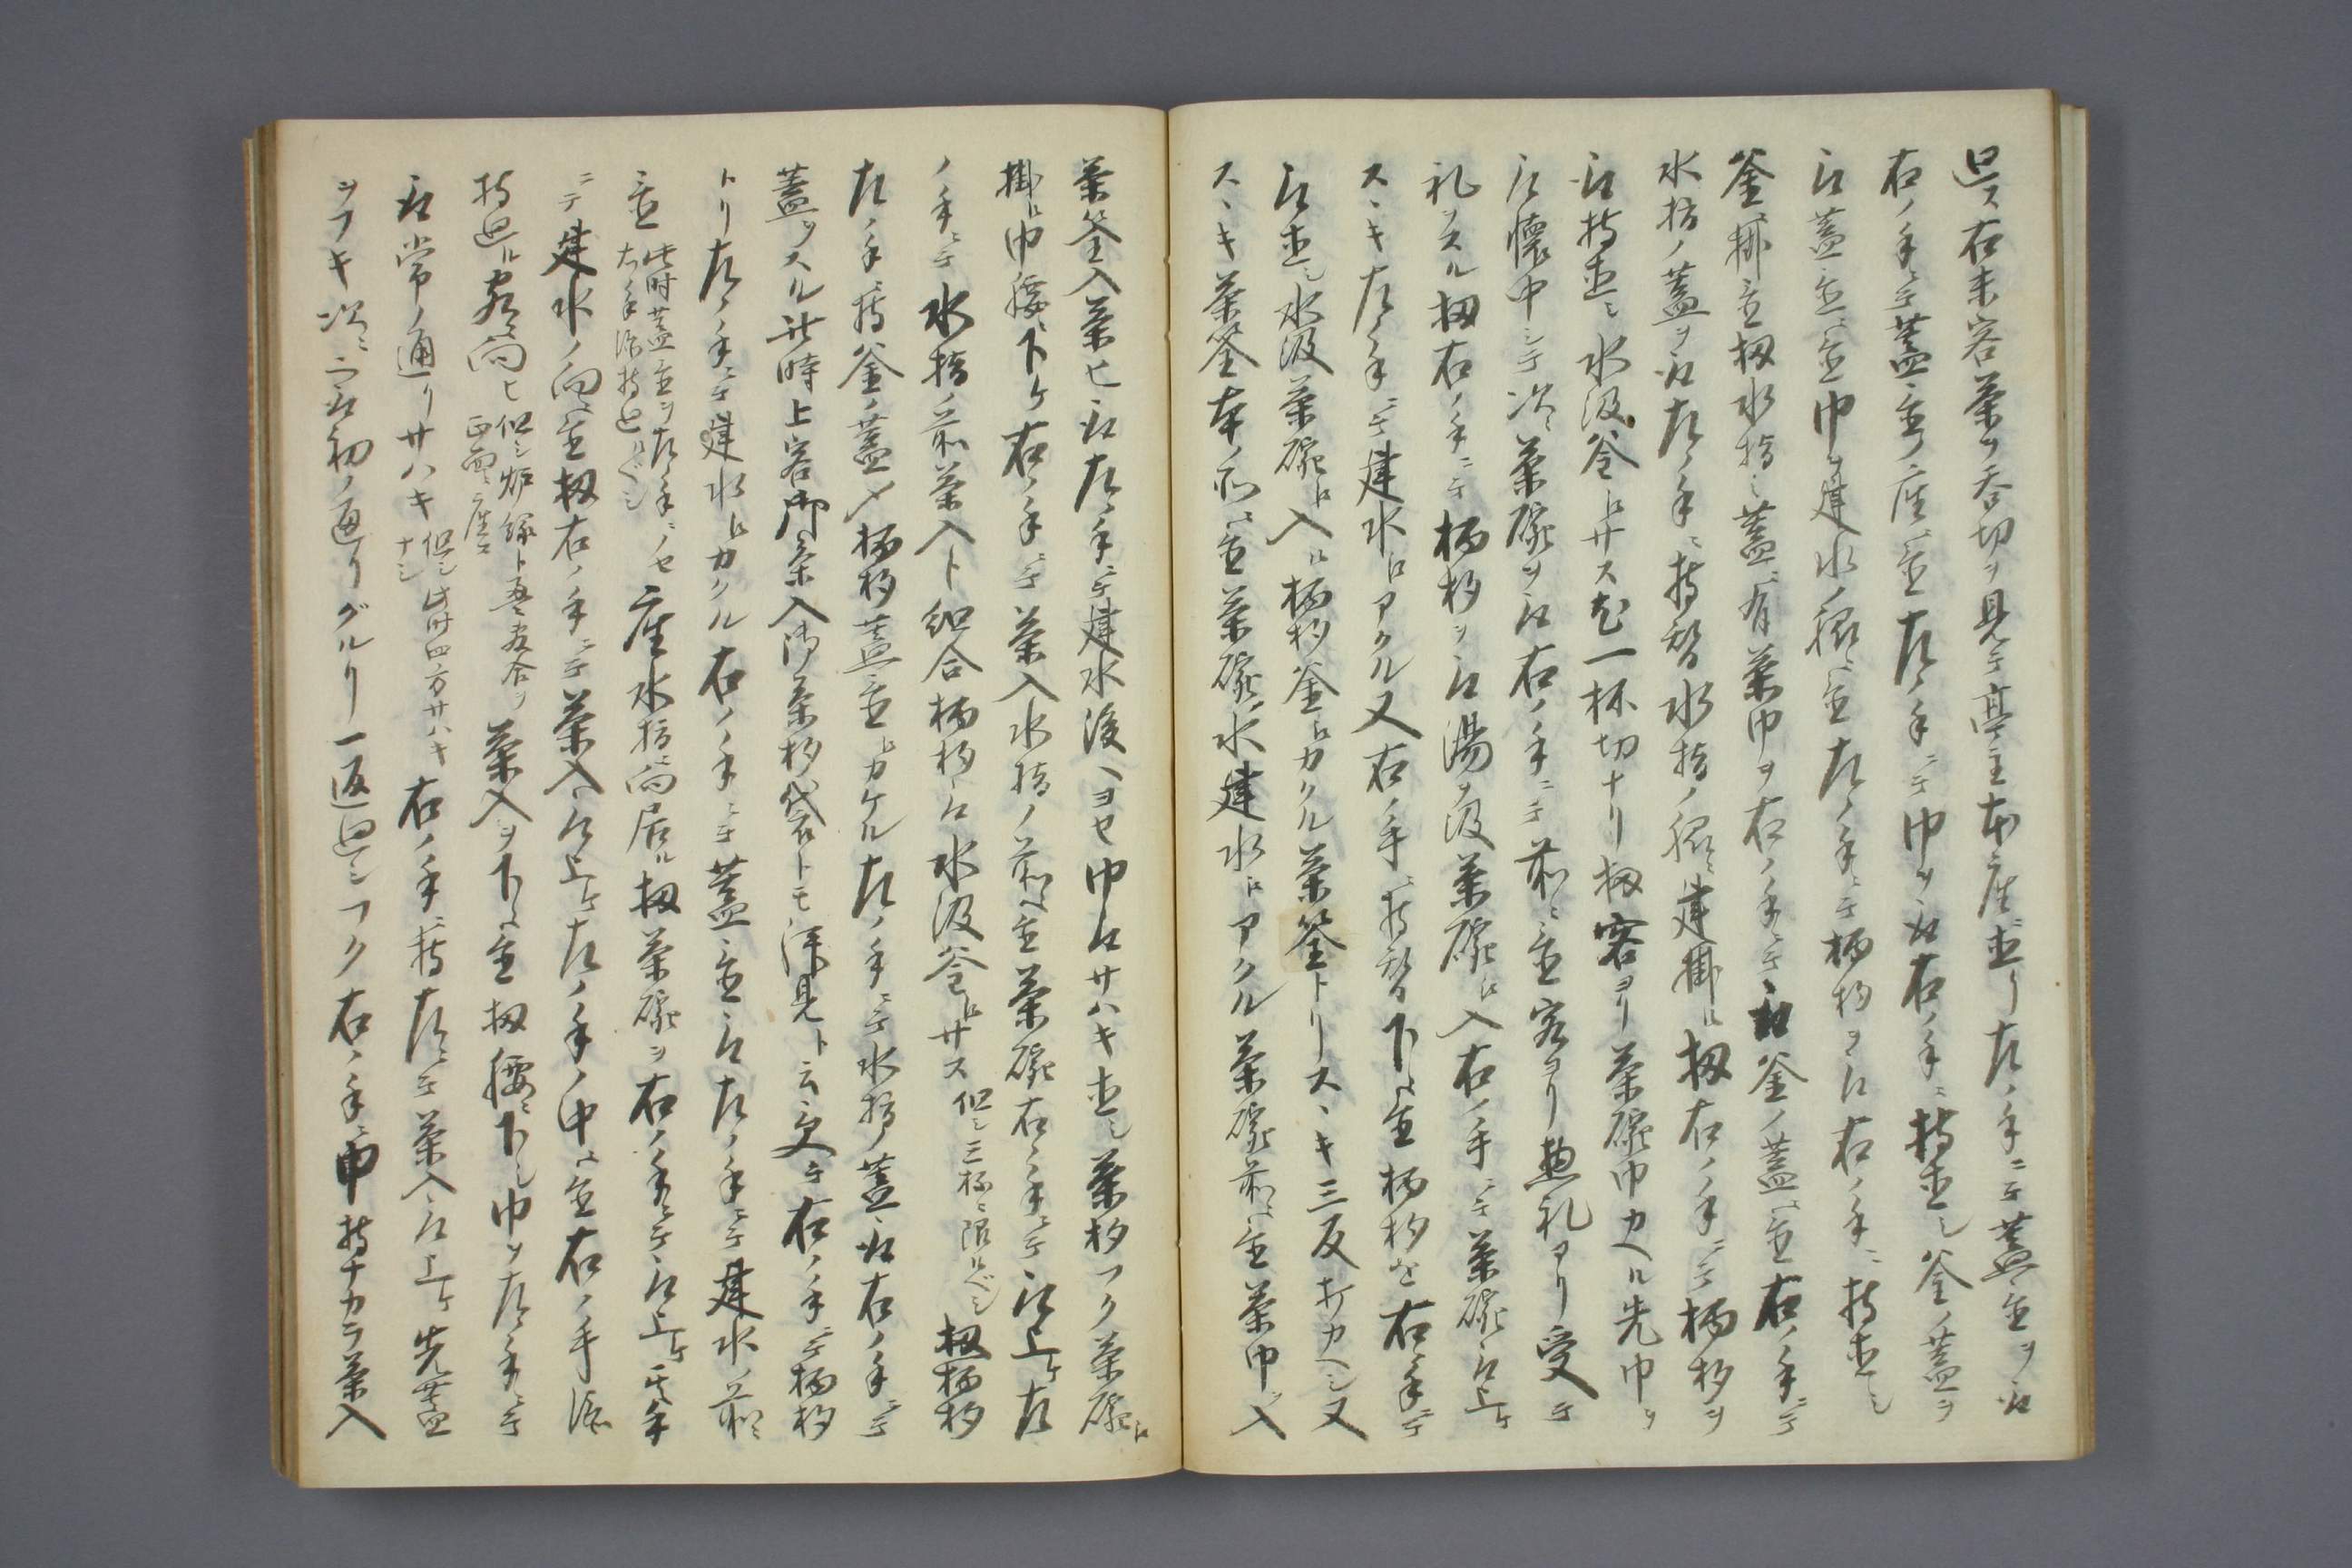 迟ス右末客茶ヲ呑切ヲ見テ亭主本座ニ直リ左ノ手ニテ蓋置ヲ取
右ノ手ニテ蓋置ヲ座ニ置左ノ手ニテ巾ヲ取右ノ手ニ持直シ釜ノ蓋ヲ
取蓋置ニ置巾ヲ建水ノ脇ニ置左ノ手ニテ柄杓ヲ取右ノ手ニ持直シ
釜ニ掛置扨水指ノ蓋ニ有茶巾ヲ右ノ手ニテ取釜ノ蓋ニ置右ノ手ニテ
水指ノ蓋ヲ取左ノ手ニ持替水指ノ脇ニ建掛ル扨右ノ手ニテ柄杓ヲ
取持直シ水汲釜ヘサス尤一杯切ナリ扨客ヨリ茶碗巾カヘル先巾ヲ
取懐中シテ次ニ茶碗ヲ取右ノ手ニテ前ニ置客ヨリ惣礼アリ受テ
礼ヲスル扨右ノ手ニテ柄杓ヲ取湯ヲ汲茶碗ヘ入右ノ手ニテ茶碗取上ケ
スヽキ左ノ手ニテ建水ヘアクル又右ノ手ニ持替下ニ置柄杓を右ノ手ニテ
取直シ水汲茶碗ヘ入ル柄杓釜ヘカクル茶筌トリスヽキ三反打カヘシ又
スヽキ茶筌本ノ所ニ置茶碗ノ水建水ヘアクル茶碗前ニ置茶巾ヲ入
茶筌入茶匕取左ノ手ニテ建水後ヘヨセ巾取サハキ直シ茶杓フク茶碗ヘ
掛ル巾腰ニ下ケ右ノ手ニテ茶入水指ノ前ヘ置茶碗右ノ手ニテ取上ケ左
ノ手ニテ水指ノ前茶入ト組合柄杓取水汲釜ヘサス但シ三杯ニ限ルベシ扨柄杓
左ノ手ニ持釜ノ蓋〆柄杓蓋置ヘカケル左ノ手ニテ水指ノ蓋取右ノ手ニテ
蓋ヲスル此時上客御茶入御茶杓袋トモ拝見ト云受テ右ノ手ニテ柄杓
トリ左ノ手ニテ建水ヘカクル右ノ手ニテ蓋置取左ノ手ニテ建水ノ前ニ
置此時蓋置ヲ左ノ手ニノセ右ノ手添持迟ルベシ座水指ニ向居ル扨茶碗ヲ右ノ手ニテ取上ケ其手
ニテ建水ノ向ニ置扨右ノ手ニテ茶入ヲ取上ケ左ノ手ノ中ニ置右ノ手添
持迟ル客ニ向ヒ但シ炉縁ト畳ノ目合ヲ正面ニ座ス茶入ヲ下ニ置扨腰ニ下シ巾ヲ左ノ手ニテ
取常ノ通リサハキ但シ此時四方サハキナシ右ノ手ニ持左ニテ茶入取上ケ先蓋
ヲフキ次ニ二取初ノ通リグルリ一返迴シフク右ノ手ニ巾持ナカラ茶入